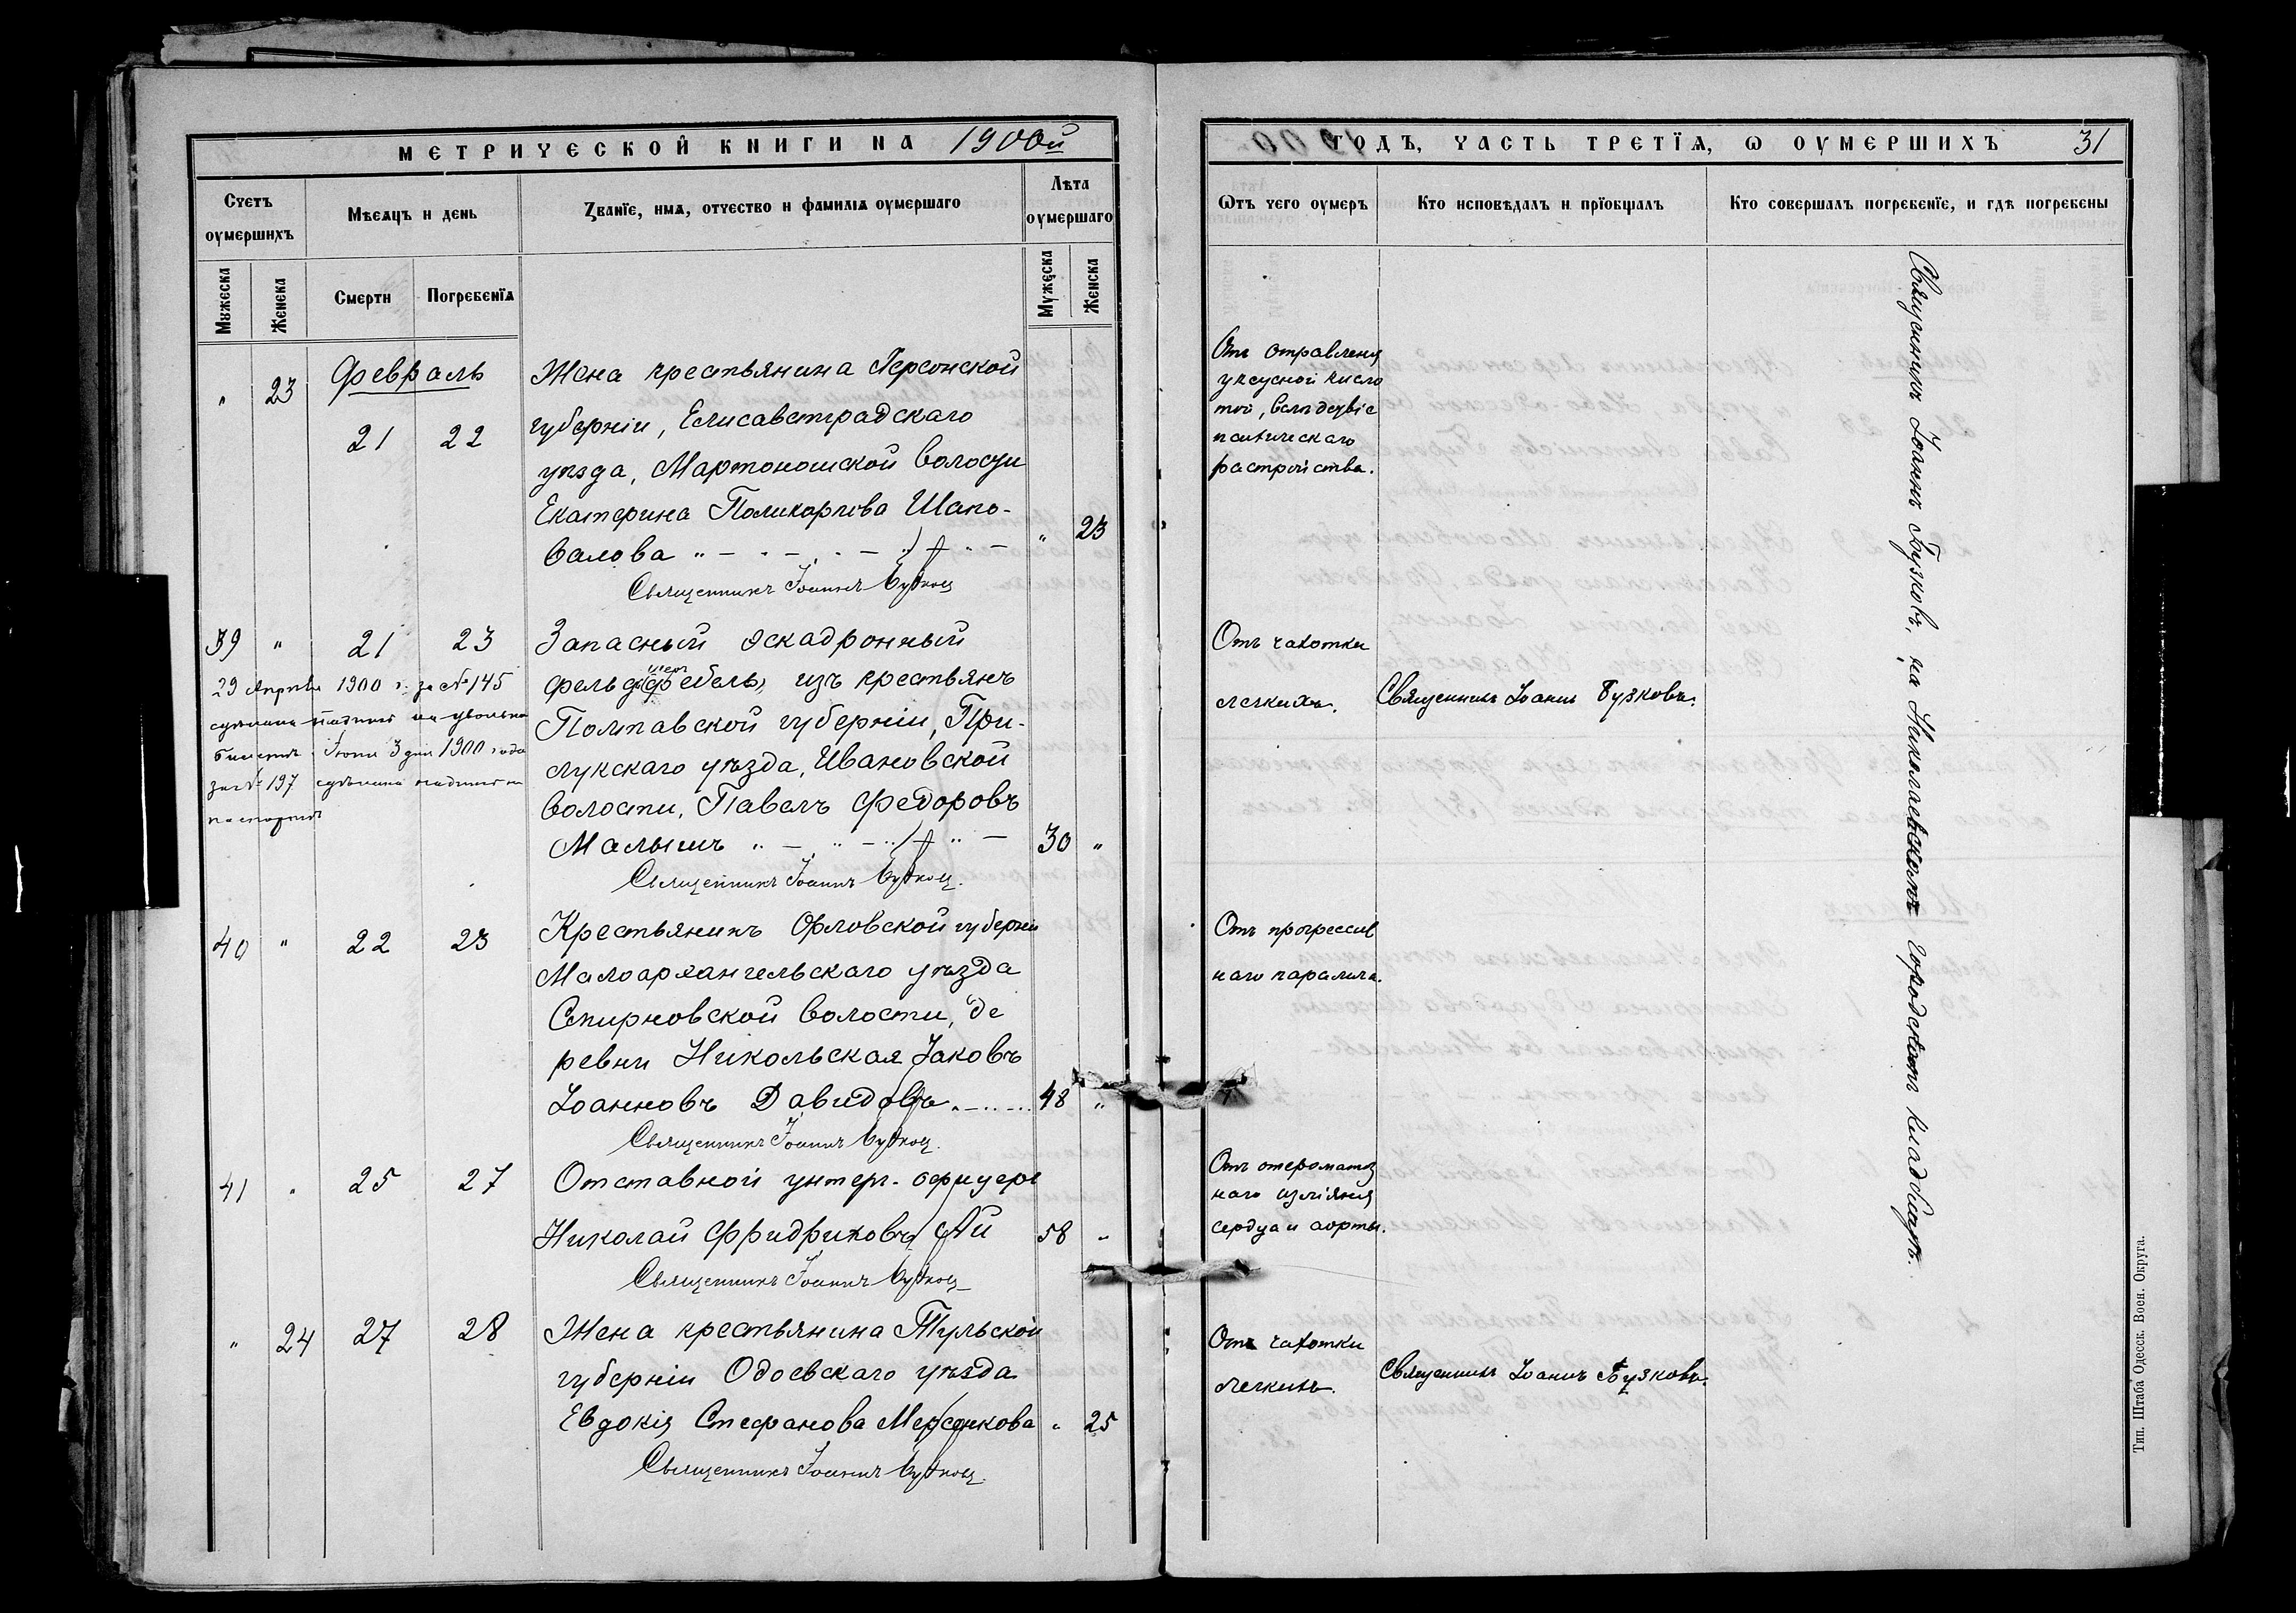 МЕТРИЧЕСКОЙ КНИГИ НА 1900й
Счетъ оумершихъ
Мѣсяцъ и день
Званіе, имя, отчество и фамилія оумершаго
Лѣта оумершаго
Мужеска
Женска
Смерти
Погребенія
Мужеска
Женска
Февраль
" 23 21 22
Жена крестьянина Херсонской
губерніи, Елисаветградскаго
уѣзда, Мартоношской волости
Екатерина Поликарпова Шапо-
валова " 23
Священникъ Іоаннъ
39 " 21 23
Запасный эскадронный
фельдфебель, изъ крестьянъ
Полтавской губерніи, При-
лукскаго уѣзда, Ивановской
волости, Павелъ Федоровъ
Малышъ 30 "
Священникъ Іоаннъ
29 Апрѣля 1900 г. за № 145
сдѣлана надпись на увольн.
билетѣ. Іюня 3 дня 1900 года
за № 197 сдѣлана надпись на
паспортѣ
40 " 22 23
Крестьянинъ Орловской губерніи
Малоархангельскаго уѣзда
волости, де
ревни Никольская Іаковъ
Іоанновъ Давидовъ 48 "
Священникъ Іоаннъ
41 " 25 27
Отставной унтеръ-офицеръ
Николай Фридриховъ Ай 58 "
Священникъ Іоаннъ
" 24 27 28
Жена крестьянина Тульской
губерніи Одоевскаго уѣзда
Евдокія Стефанова " 25
Священникъ Іоаннъ
ГОДЪ, ЧАСТЬ ТРЕТІЯ, Ѡ ОУМЕРШИХЪ 31
Ѿтъ чего оумеръ
Кто исповѣдалъ и пріобщалъ
Кто совершалъ погребеніе, и гдѣ погребены
Отъ отравленія
уксусной кисло
той, вслѣдствіе
психическаго
растройства.
Отъ чахотки
легкихъ.
Священникъ Іоаннъ Бузковъ.
Отъ прогрессив
наго паралича.
Отъ
наго
сердца и аорты.
Отъ чахотки
легкихъ.
Священникъ Іоаннъ Бузковъ.
Священникъ Іоаннъ Бузковъ, на Николаевскомъ городскомъ кладбищѣ.
Тип. Штаба Одесск. Воен. Округа.